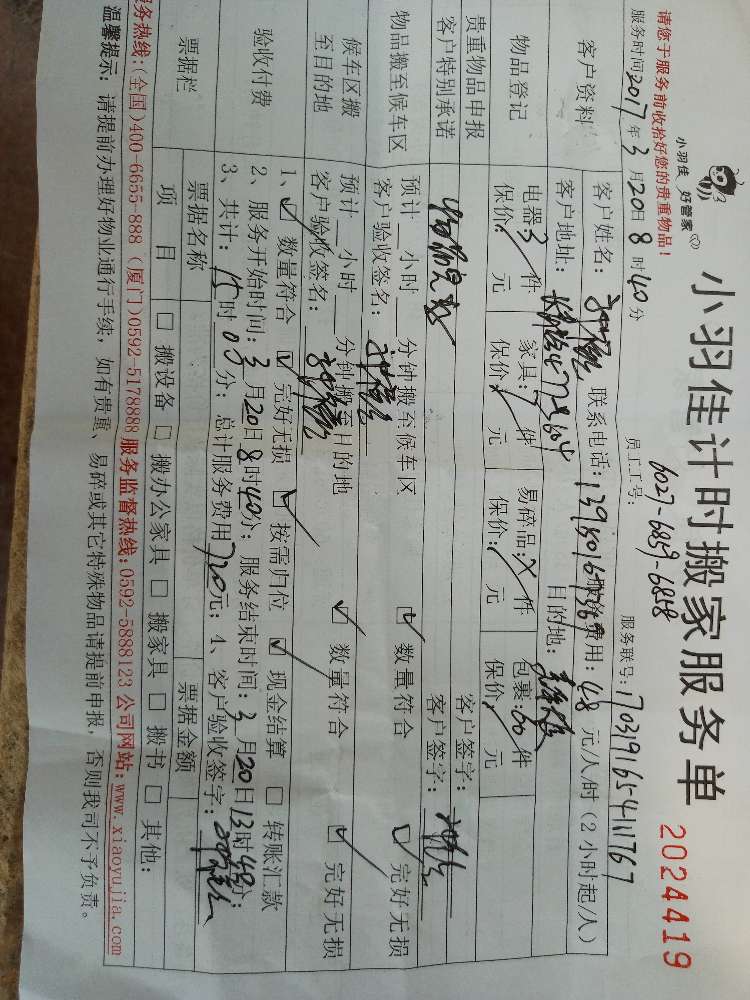 小羽佳 好管家
小羽佳计时搬家服务单
2024419
请您于服务前收拾好您的贵重物品!
员工工号: 6027-6859-6868
服务时间2017年3月20日8时40分
服务联号:
客户资料
客户姓名: 联系电话: 费用:48元/人/时(2小时起/人)
客户地址: 目的地:
物品登记
电器:3件 家具:件 易碎品:件 包裹:60件
保价: 元 保价: 元 保价: 元 保价: 元
贵重物品申报
客户特别承诺
客户签字:
客户签字:
物品搬至候车区
预计 小时 分钟搬至候车区 ☑ 数量符合 ☑ 完好无损
客户验收签名:
候车区搬
至目的地
预计 小时 分钟搬至目的地 ☑ 数量符合 ☑ 完好无损
客户验收签名:
验收付费
1、☑ 数量符合 ☑ 完好无损 ☑ 按需归位 ☑ 现金结算 □ 转账汇款
2、服务开始时间:3月20日8时40分;服务结束时间:3月20日13时48分;
3、共计:15时00分;总计服务费用720元;4、客户验收签字:
票据栏
票据名称 票据金额
项 目 □ 搬设备 □ 搬办公家具 □ 搬家具 □ 搬书 □ 其他:
服务热线:(全国)400-6655-888 (厦门)0592-5178888 服务监督热线:0592-5888123 公司网站:www.xiaoyujia.com
温馨提示:请提前办理好物业通行手续,如有贵重、易碎或其它特殊物品请提前申报,否则我司不予负责。